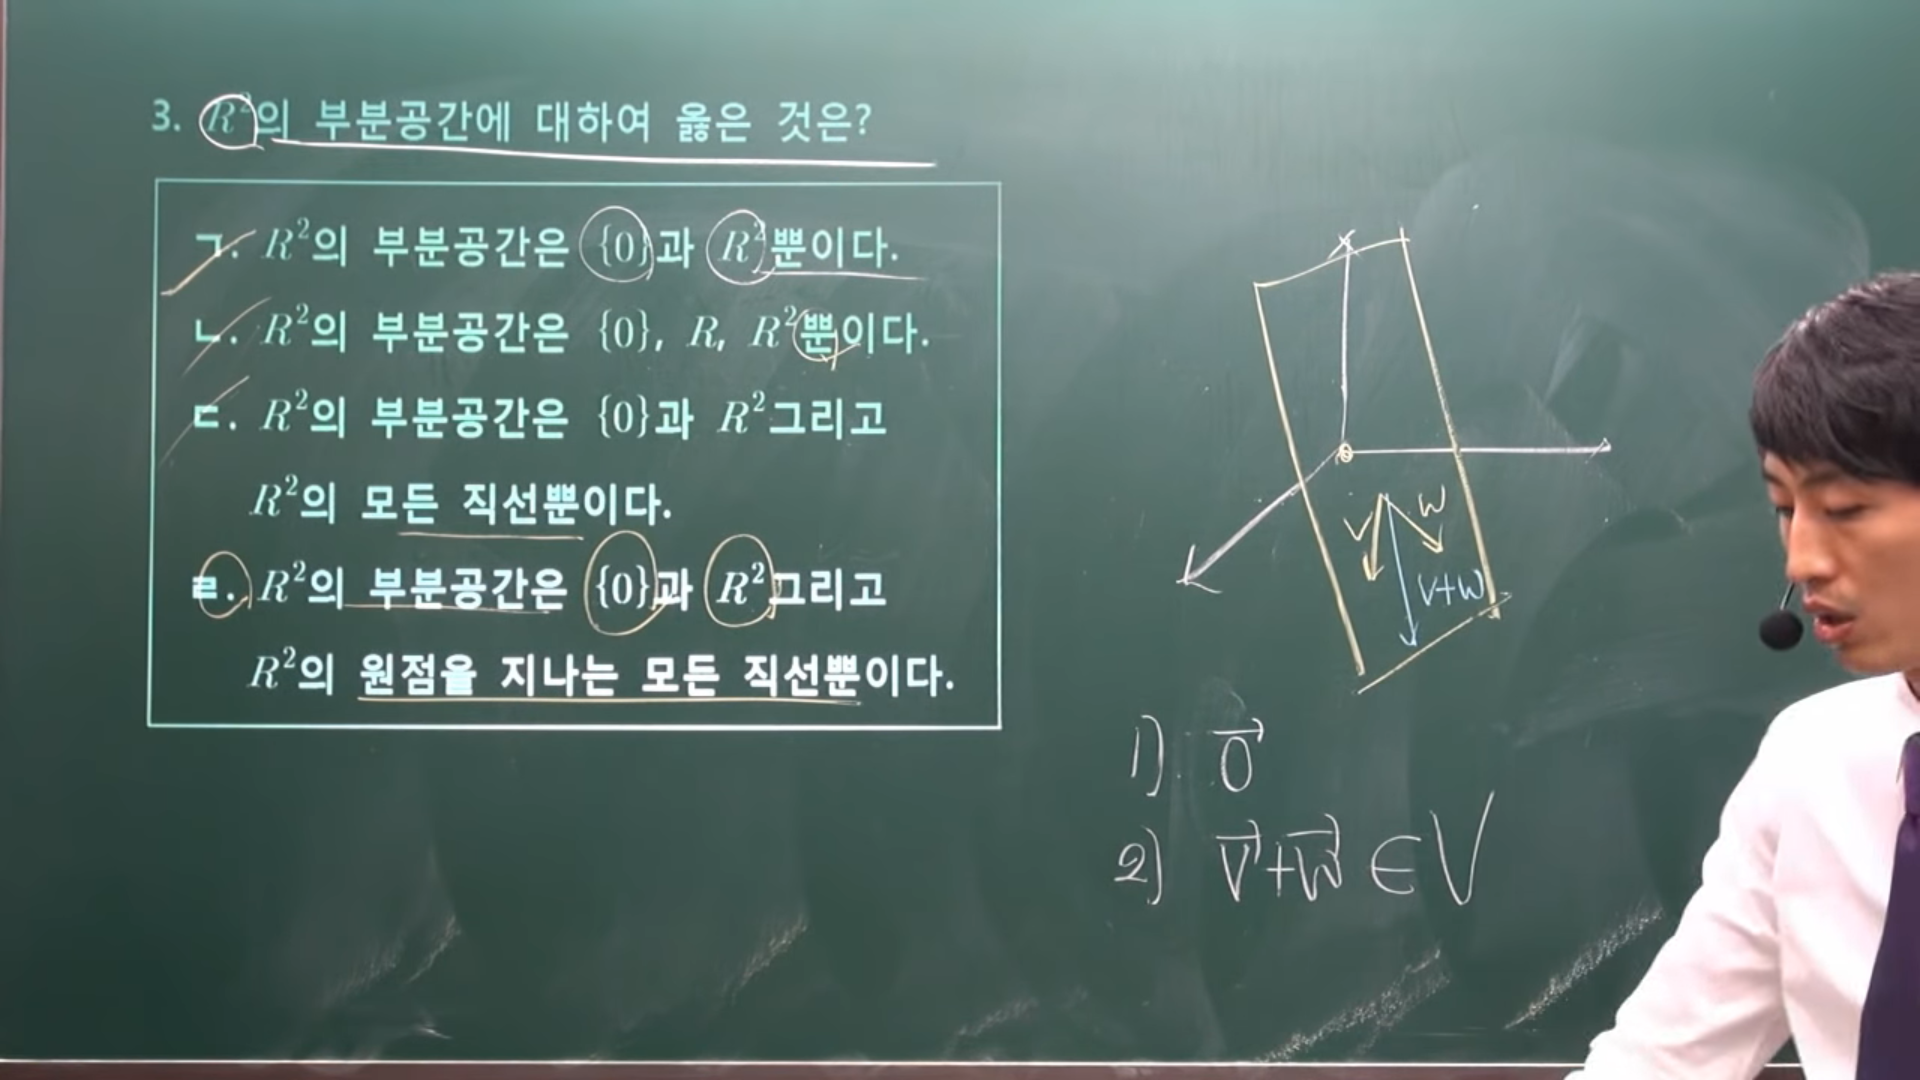 3. R²의 부분공간에 대하여 옳은 것은?
ㄱ. R²의 부분공간은 {0}과 R²뿐이다.
ㄴ. R²의 부분공간은 {0}, R, R²뿐이다.
ㄷ. R²의 부분공간은 {0}과 R²그리고
R²의 모든 직선뿐이다.
ㄹ. R²의 부분공간은 {0}과 R²그리고
R²의 원점을 지나는 모든 직선뿐이다.
V W
V+W
1) 0⃗
2) V⃗+W⃗ ∈ V